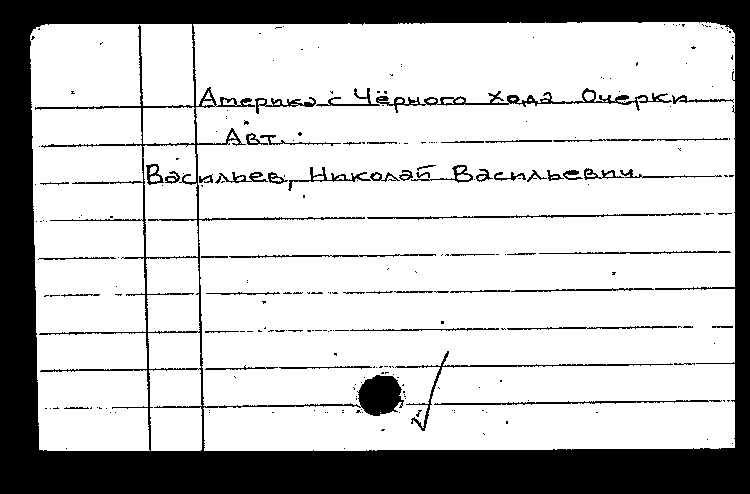 Америка с Чёрного хода Очерки
Авт.:
Васильев, Николай Васильевич.